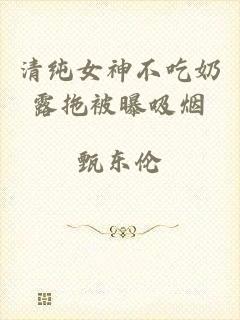 清纯女神不吃奶
露拖被曝吸烟
甄东伦